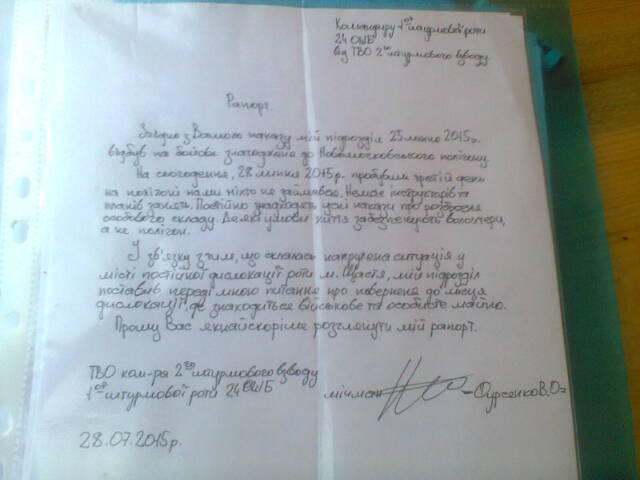 Командиру 1ої штурмової роти
24 ОШБ
від ТВО 2го штурмового взводу
Рапорт.
Згідно з Вашого наказу мій підрозділ 25 липня 2015р.
відбув на бойове злагодження до Новомосковського полігону.
На сьогодення, 28 липня 2015р. пробувши третій день
на полігоні нами ніхто не займався. Немає інструкторів та
планів занять. Постійно надходять усні накази про роззброєння
особового складу. Деякі умови життя забезпечують волонтери,
а не полігон.
У зв'язку з тим, що склалась напружена ситуація у
місті постійної дислокації роти м. Щастя, мій підрозділ
поставив переді мною питання про повернення до місця
дислокації, де знаходиться військове та особисте майно.
Прошу Вас якнайскоріше розглянути мій рапорт.
ТВО ком-ра 2го штурмового взводу
1ої штурмової роти 24 ОШБ мічман
28.07.2015р.